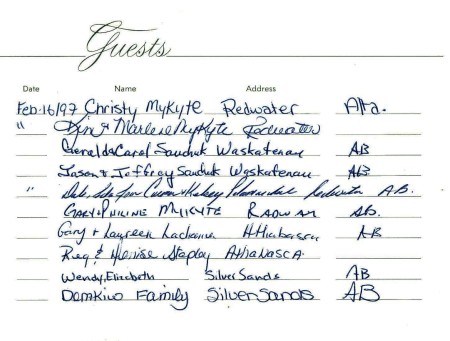 Guests
Date Name Address
Feb. 16/97 Christy Mykyte Redwater Alta.
" Kim & Marlene Mykyte Redwater
Gerald & Carol Sawchuk Waskatenau AB
Jason & Jeffrey Sawchuk Waskatenau AB
" Redwater AB.
Gary & Philine Mykyte Radway AB.
Gary & Laureen Athabasca AB
Reg & Denise Stapley Athabasca
Wendy, Elizabeth Silver Sands AB
Domkiw Family Silver Sands AB